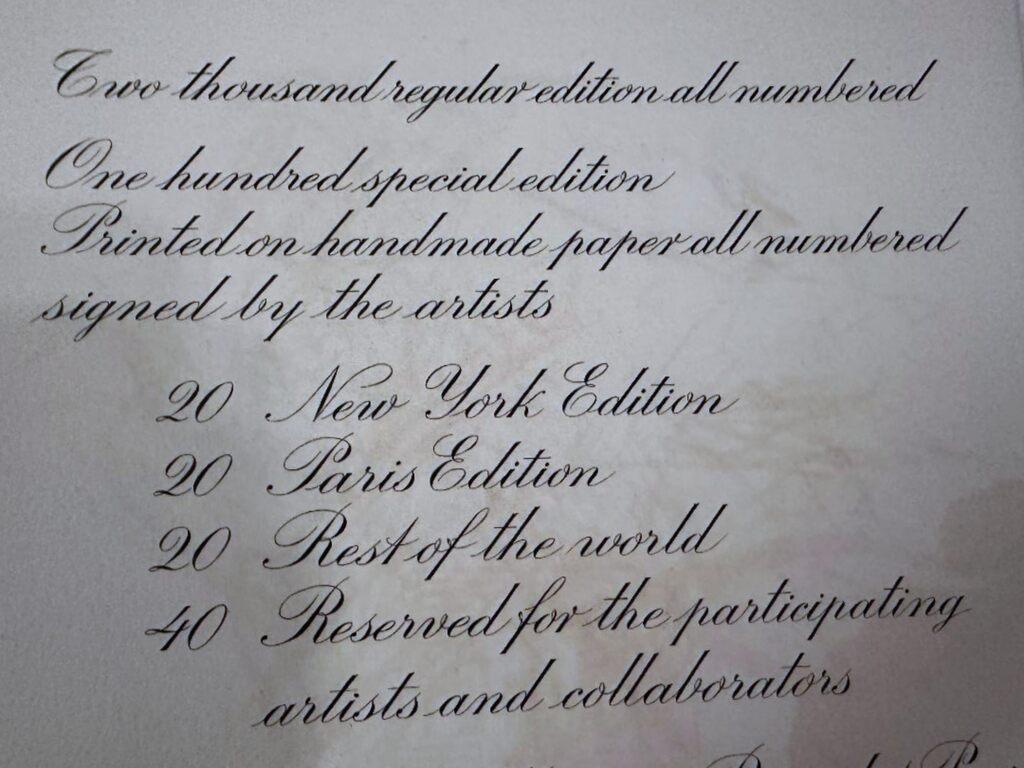 Two thousand regular edition all numbered
One hundred special edition
Printed on handmade paper all numbered
signed by the artists
20 New York Edition
20 Paris Edition
20 Rest of the world
40 Reserved for the participating
artists and collaborators